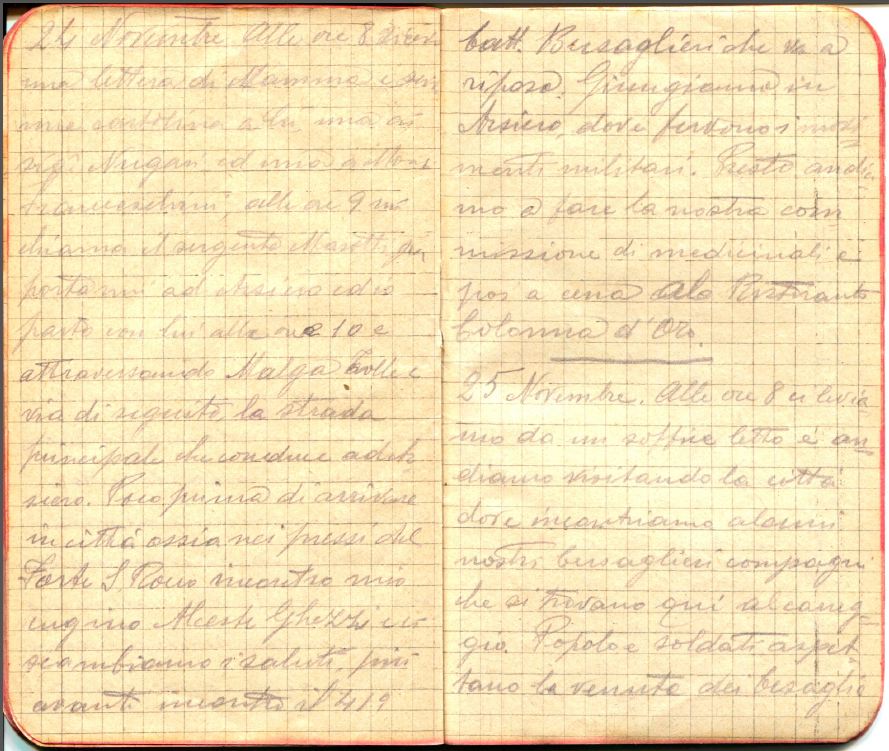 24 Novembre. Alle ore 8 ricevo
una lettera di Mamma e
una cartolina a lui, una ai
sig. Nugari ed una a
Franceschini, alle ore 9 mi
chiama il sergente Masotti per
portarmi ad Arsiero ed io
parto con lui alle ore 10 e
attraversando Malga Zolle e
via di seguito la strada
principale che conduce ad Ar
siero. Poco prima di arrivare
in città ossia nei pressi del
Forte S. Rocco incontro mio
cugino Alceste Ghezzi e ci
scambiamo i saluti, più
avanti incontro il 419
batt. Bersaglieri che va a
riposo. Giungiamo in
Arsiero, dove fervono i movi
menti militari. Presto andia
mo a fare la nostra com
missione di medicinali e
poi a cena alo Ristorante
Colonna d'Oro.
25 Novembre. Alle ore 8 ci levia
mo da un soffice letto e an
diamo visitando la città
dove incontriamo alcuni
nostri bersaglieri compagni
che si trovano qui al careg
gio. Popolo e soldati aspet
tano la venuta dei bersaglie